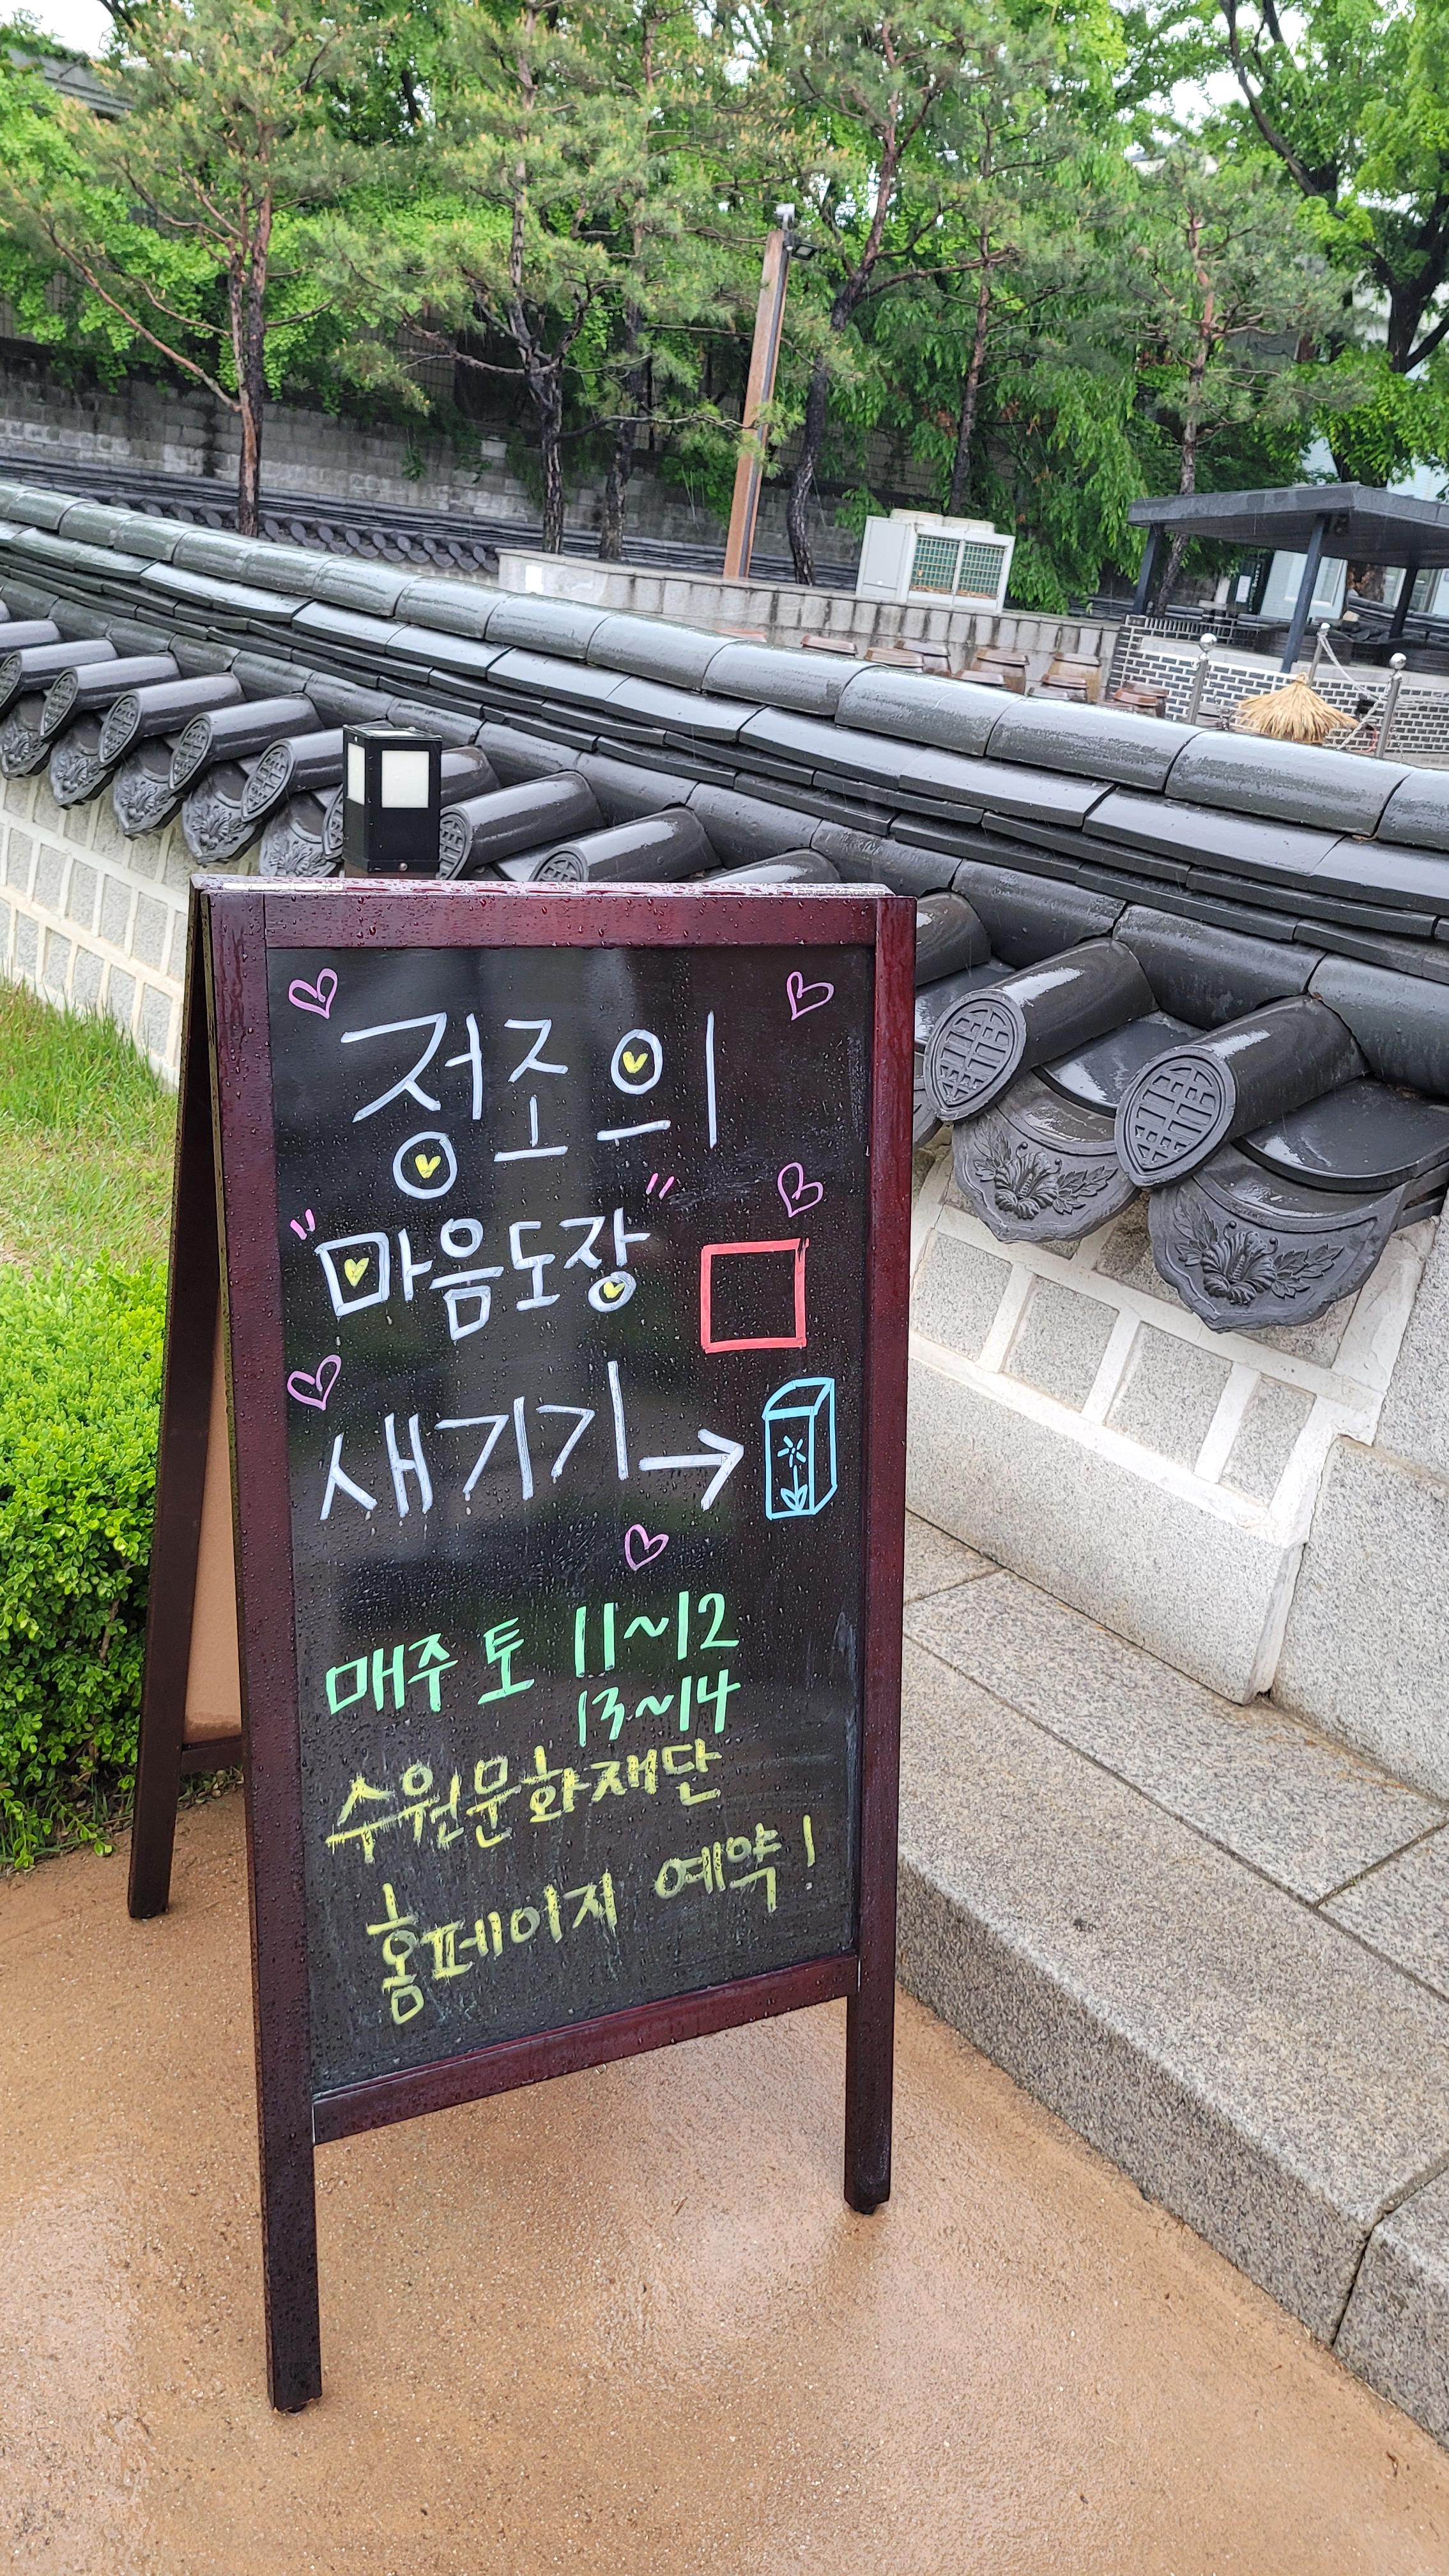 정조의
"마음도장"
새기기→
매주 토 11~12
13~14
수원문화재단
홈페이지 예약!